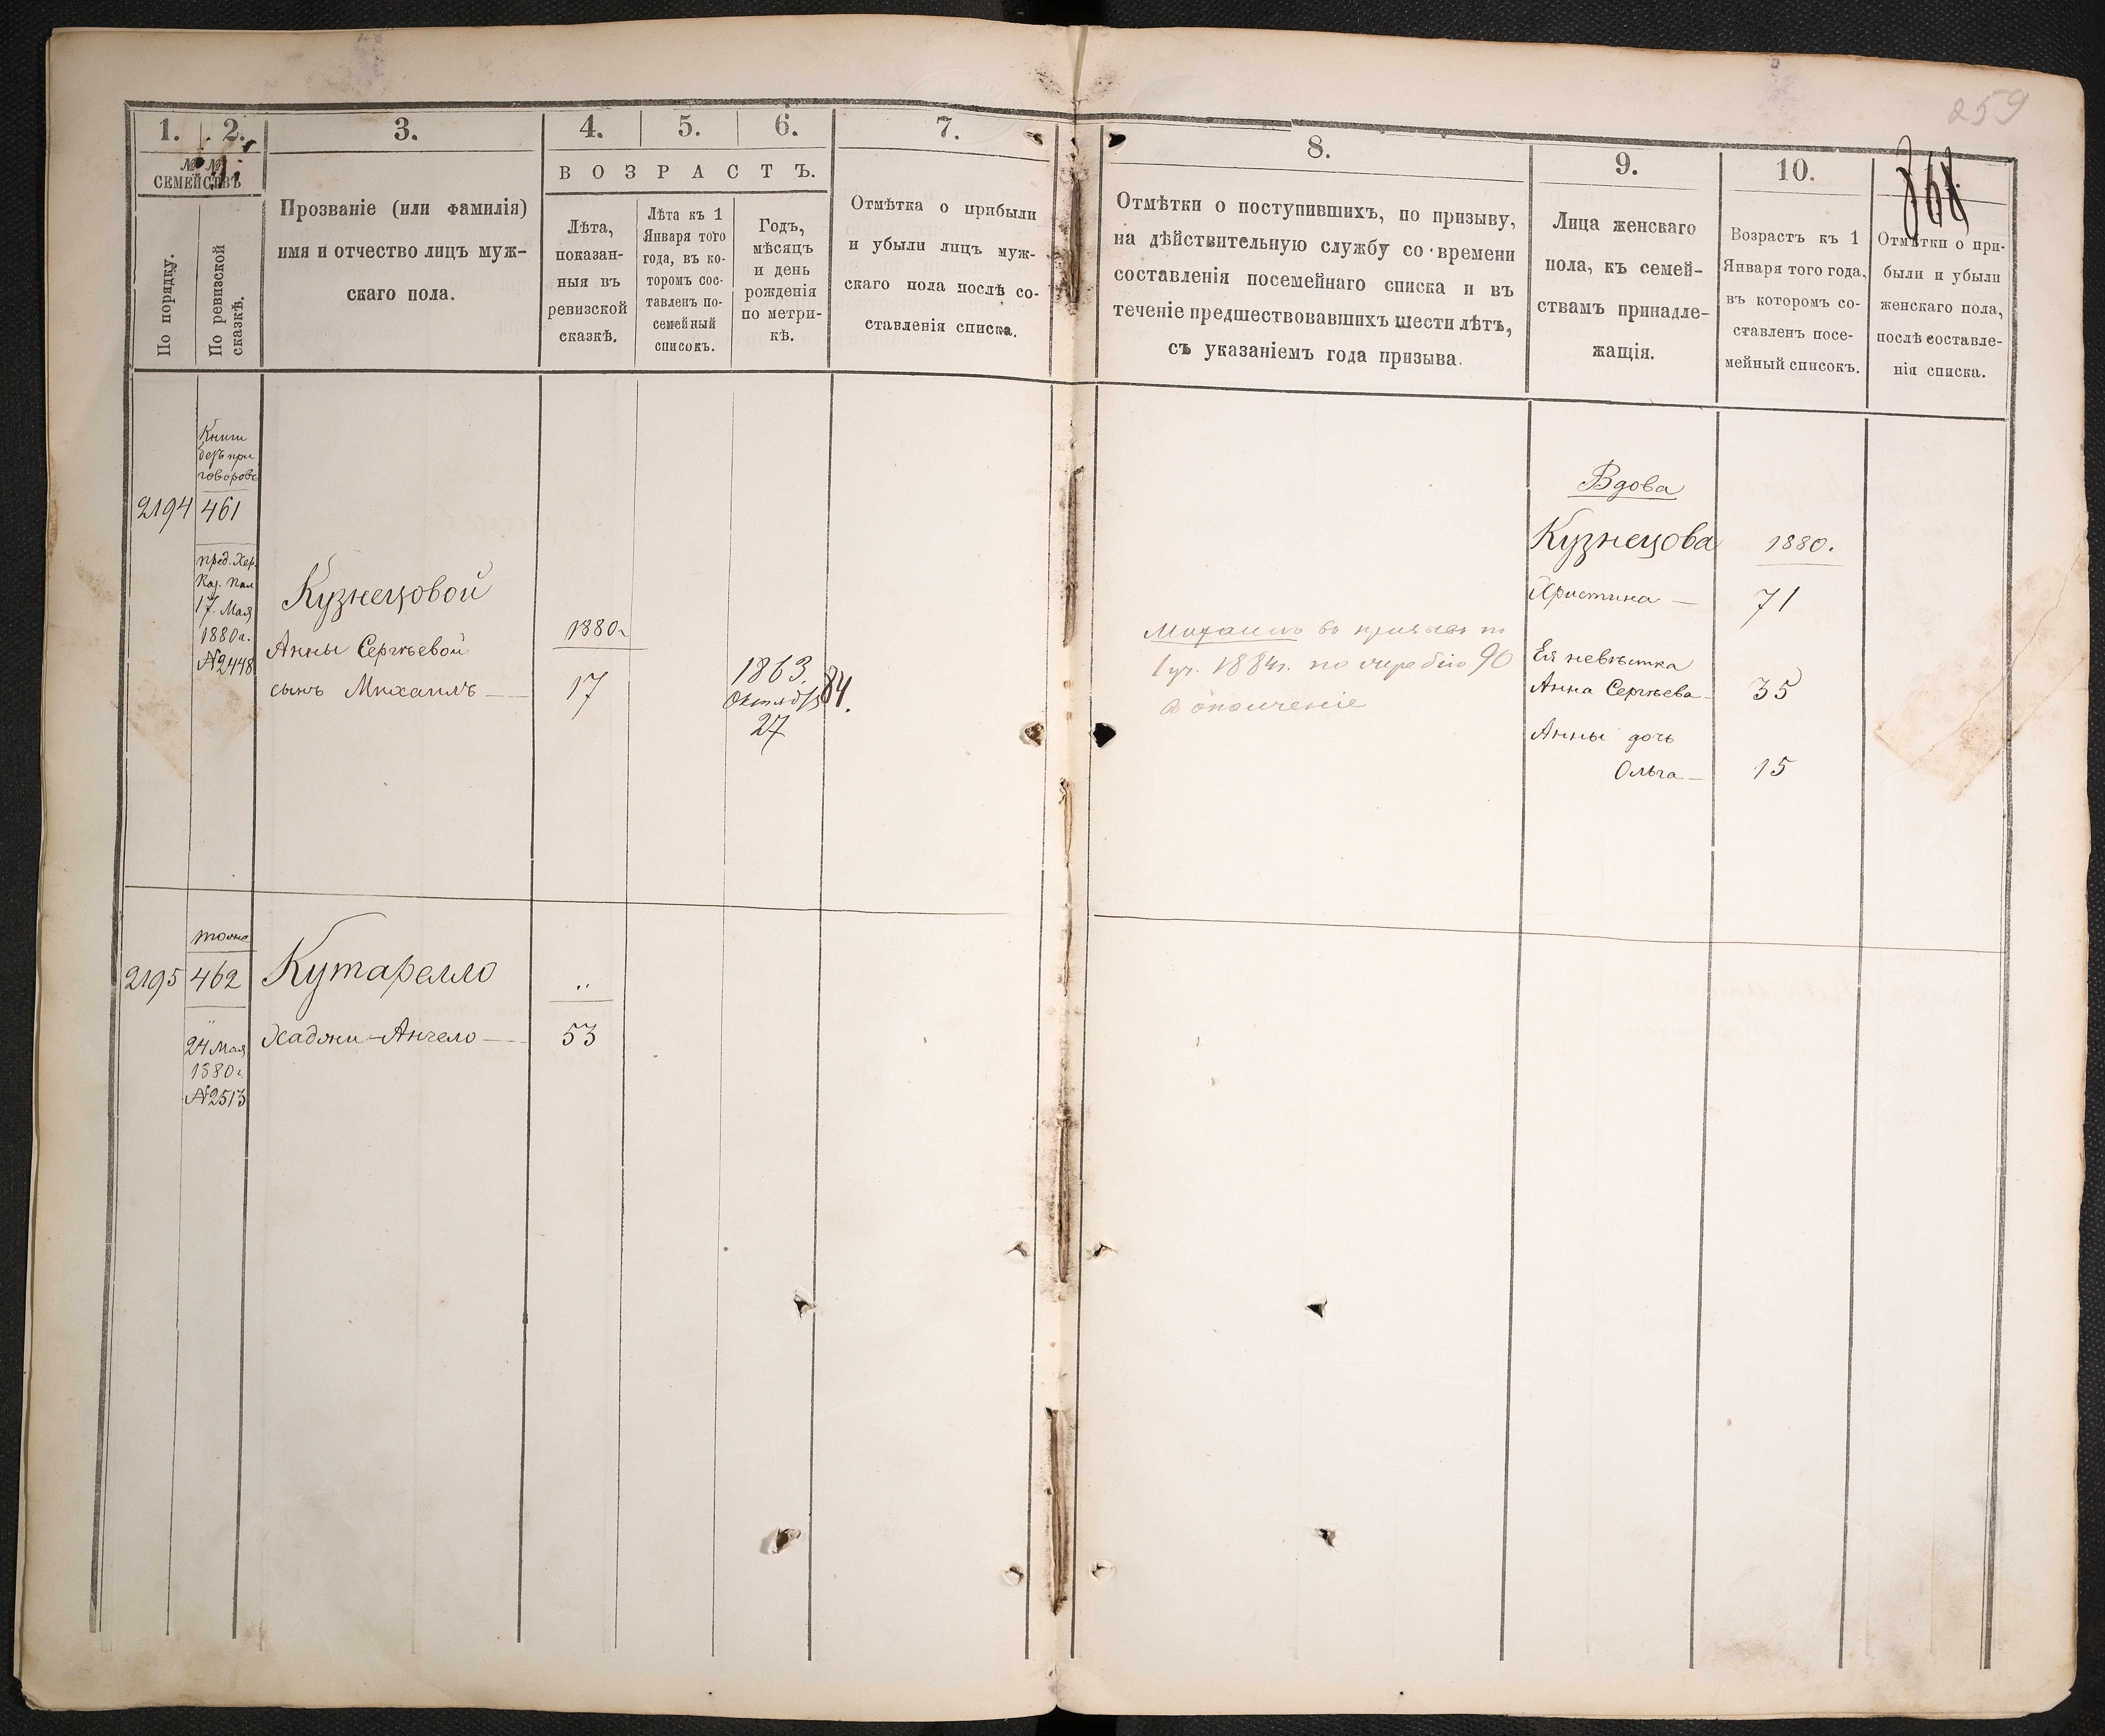 259
1. 2. 3. 4. 5. 6. 7.
№ №
СЕМЕЙСТВЪ
По порядку.
По ревизской сказкѣ.
Прозваніе (или фамилія)
имя и отчество лицъ муж-
скаго пола.
ВОЗРАСТЪ.
Лѣта,
показан-
ныя въ
ревизской
сказкѣ.
Лѣта къ 1
Января того
года, въ ко-
торомъ сос-
тавленъ по-
семейный
списокъ.
Годъ,
мѣсяцъ
и день
рожденія
по метри-
кѣ.
Отмѣтка о прибыли
и убыли лицъ муж-
скаго пола послѣ со-
ставленія списка.
8. 9. 10.
Отмѣтки о поступившихъ, по призыву,
на дѣйствительную службу со времени
составленія посемейнаго списка и въ
теченіе предшествовавшихъ шести лѣтъ,
съ указаніемъ года призыва.
Лица женскаго
пола, къ семей-
ствамъ принадле-
жащія.
Возрастъ къ 1
Января того года,
въ котороmъ со-
ставленъ посе-
мейный списокъ.
Отмѣтки о при-
были и убыли
женскаго пола,
послѣ составле-
нія списка.
Книги
безъ при
говоровъ
2194 461
пред. Хер.
Каз. Пал
17 Мая
1880 г.
№2448
Кузнецовой
Анны Сергѣевой
сынъ Михаилъ
1880 г
17
1863
Октябр
27
84.
Михаилъ въ призывъ по
1 уч. 1884 г. по жребію 90
в ополченіе
Вдова
Кузнецова 1880.
Христина — 71
Ея невѣстка
Анна Сергѣева 35
Анны дочь
Ольга — 15
тоже
2195 462 Кутарелло "
" Хаджи-Анчело — 53
24 Мая
1880 г.
№2513